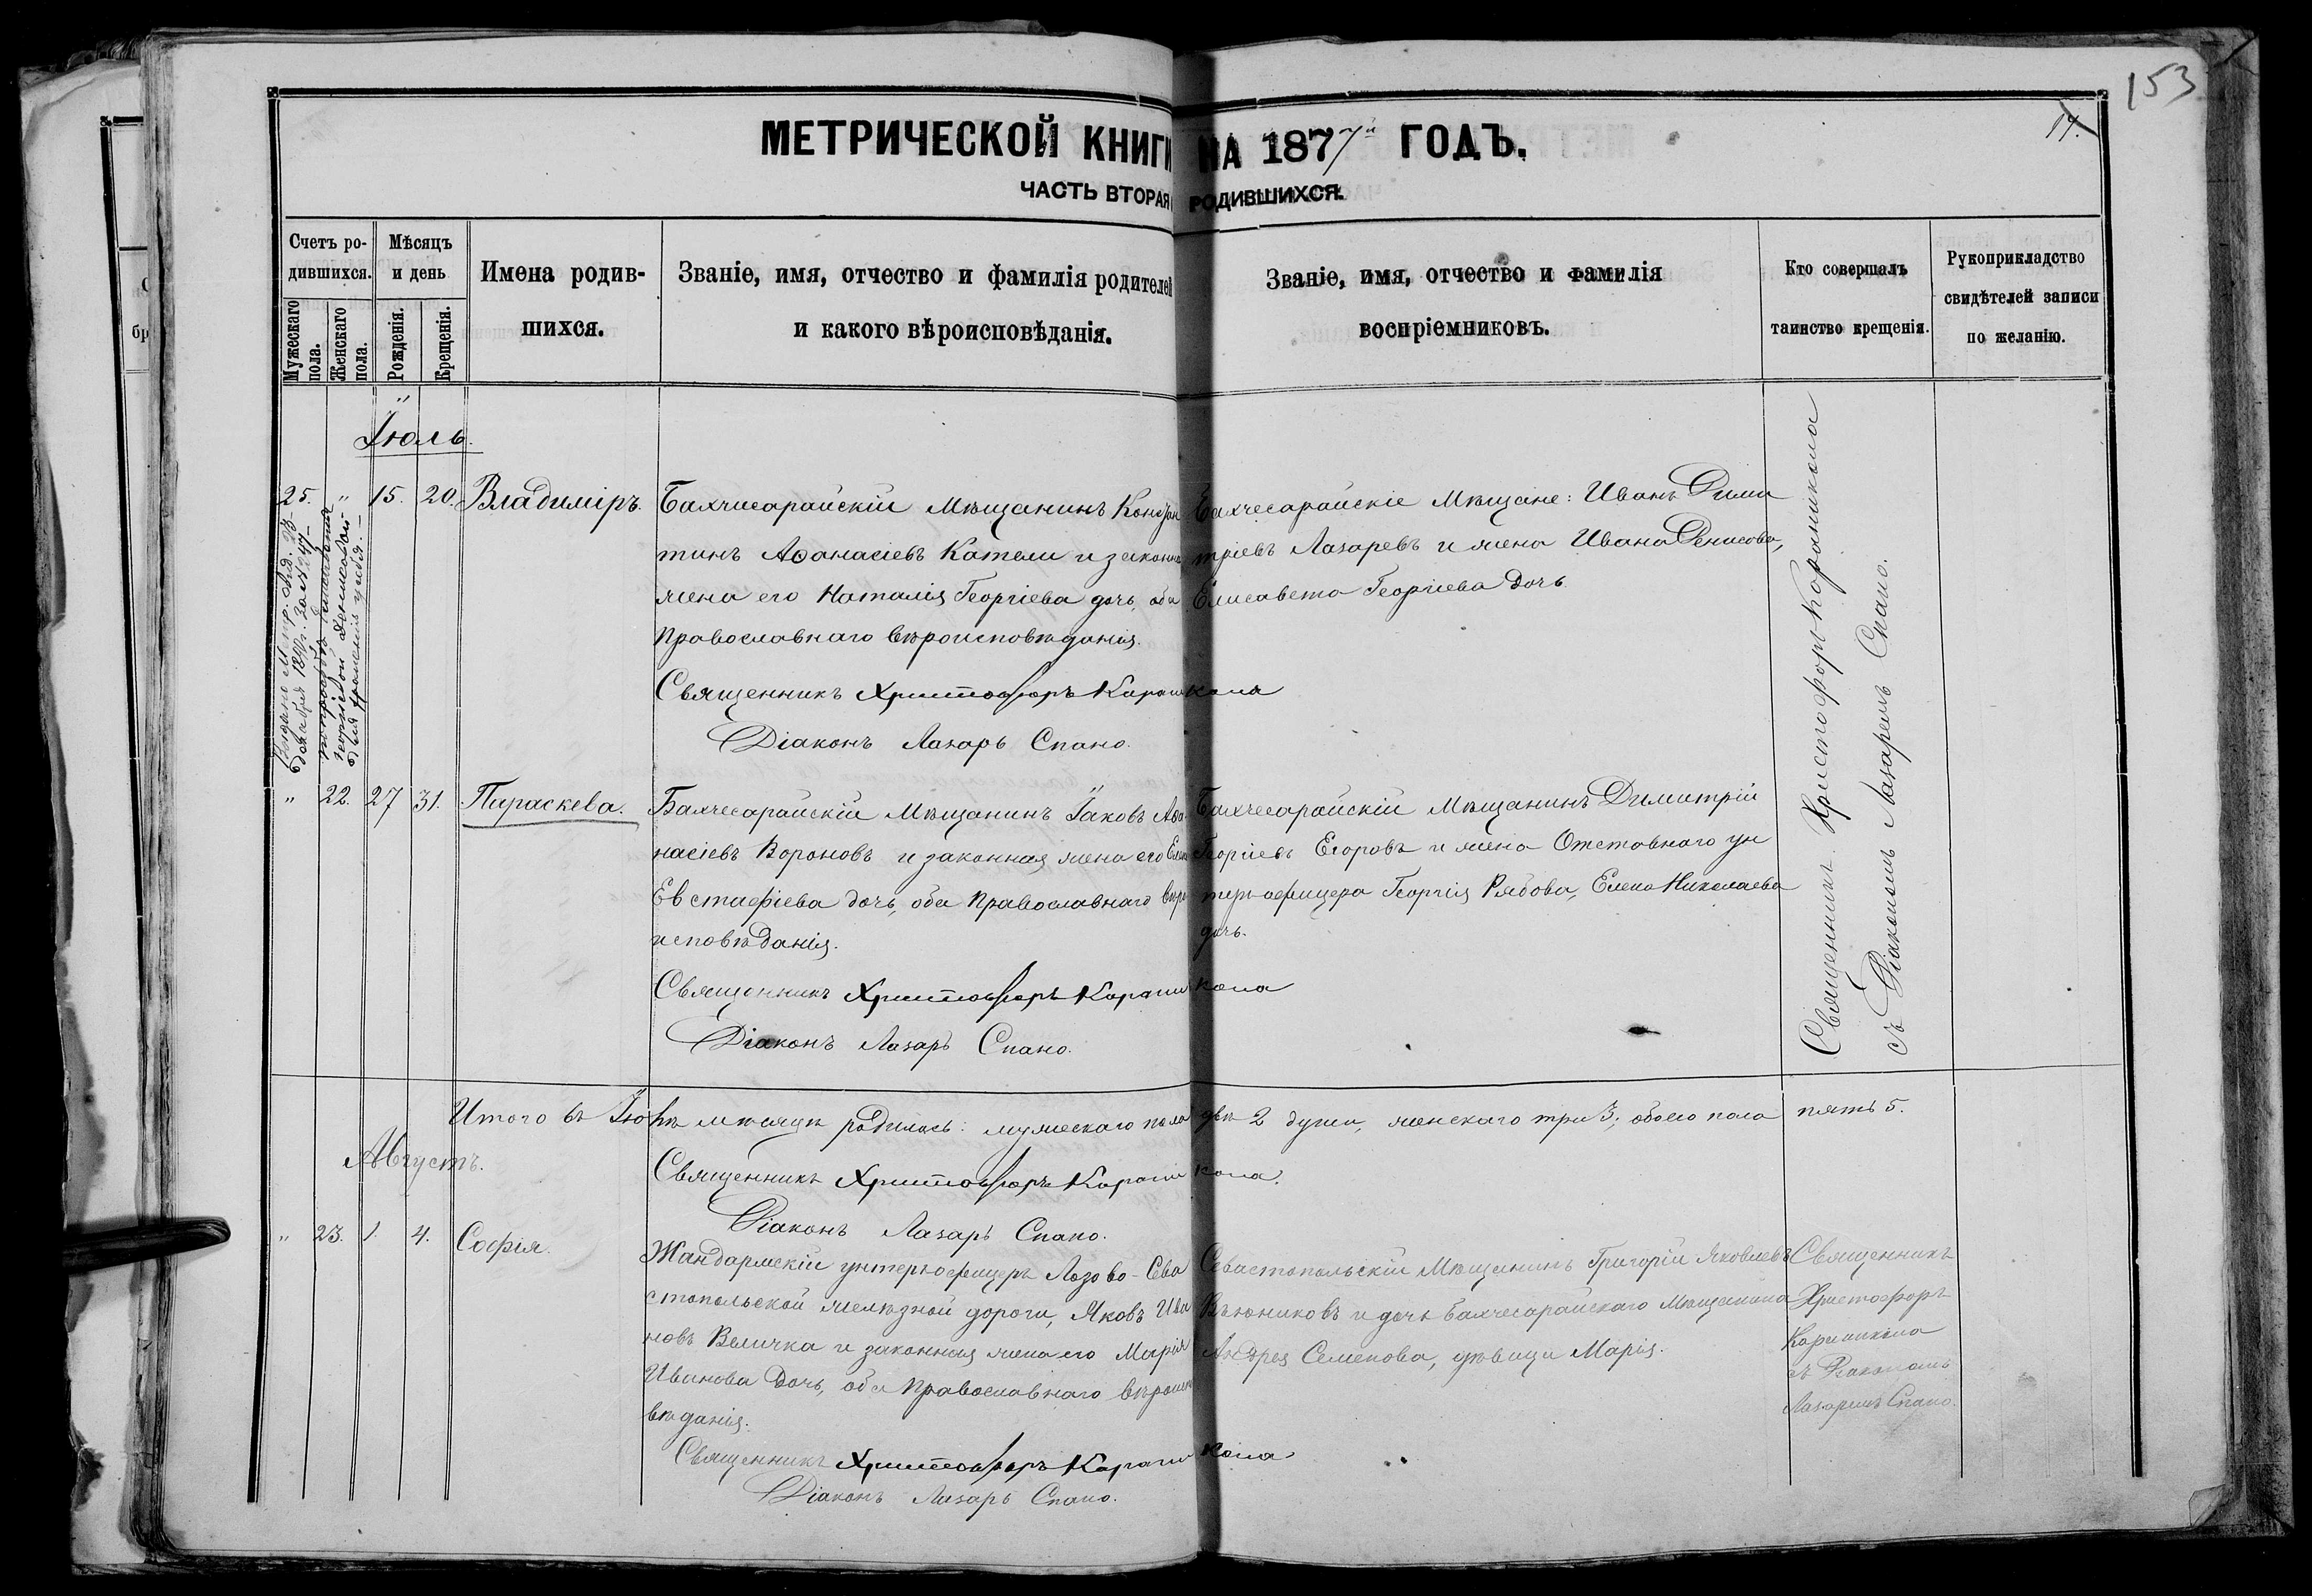 153
14.
МЕТРИЧЕСКОЙ КНИГИ НА 1877й ГОДЪ.
ЧАСТЬ ВТОРАЯ РОДИВШИХСЯ.
Счетъ ро-
дившихся.
Мужескаго
пола.
Женскаго
пола.
Мѣсяцъ
и день
Рожденія.
Крещенія.
Имена родив-
шихся.
Званіе, имя, отчество и фамилія родителей
и какого вѣроисповѣданія.
Званіе, имя, отчество и фамилія
воспріемниковъ.
Кто совершалъ
таинство крещенія.
Рукоприкладство
свидѣтелей записи
по желанію.
Іюль.
25. " 15. 20. Владиміръ.
Бахчисарайскій Мѣщанинъ Констан
тинъ Аѳанасіевъ Катели и законная
жена его Наталія Георгіева дочь, оба
Православнаго вѣроисповѣданія.
Священникъ Христофоръ Караникола
Діаконъ Лазарь Спано.
Бахчесарайскіе Мѣщане: Иванъ Дими
тріевъ Лазаревъ и жена Ивана Денисова,
Елисавета Георгіева дочь
Священникъ Христофоръ Караникола
съ Діакономъ Лазаремъ Спано.
" 22. 27 31. Параскева.
Бахчесарайскій Мѣщанинъ Іаковъ Аѳа
насіевъ Вороновъ и законная жена его Елена
Евстафіева дочь, оба Православнаго вѣро
исповѣданія.
Священникъ Христофоръ Караникола
Діаконъ Лазарь Спано.
Бахчесарайскій Мѣщанинъ Димитрій
Георгіевъ Егоровъ и жена Отставного ун
теръ-офицера Георгія Рябова, Елена Николаева
дочь.
Итого въ Іюлѣ мѣсяцѣ родилось: мужескаго пола двѣ 2 души, женскаго три 3; обоего пола пять 5.
Священникъ Христофоръ Караникола.
Діаконъ Лазарь Спано.
Августъ.
" 23. 1. 4. Софія.
Жандармскій унтеръ-офицеръ Лозово-Сева
стопольской желѣзной дороги, Яковъ Ива
новъ Величка и законная жена его Марія
Иванова дочь, оба Православнаго вѣроиспо
вѣданія.
Священникъ Христофоръ Караникола
Діаконъ Лазарь Спано.
Севастопольскій Мѣщанинъ Григорій Яковлевъ
Вьюниковъ и дочь Бахчесарайскаго Мѣщанина
Андрея Семенова, дѣвица Марія.
Священникъ
Христофоръ
Караникола
съ Діакономъ
Лазаремъ Спано.